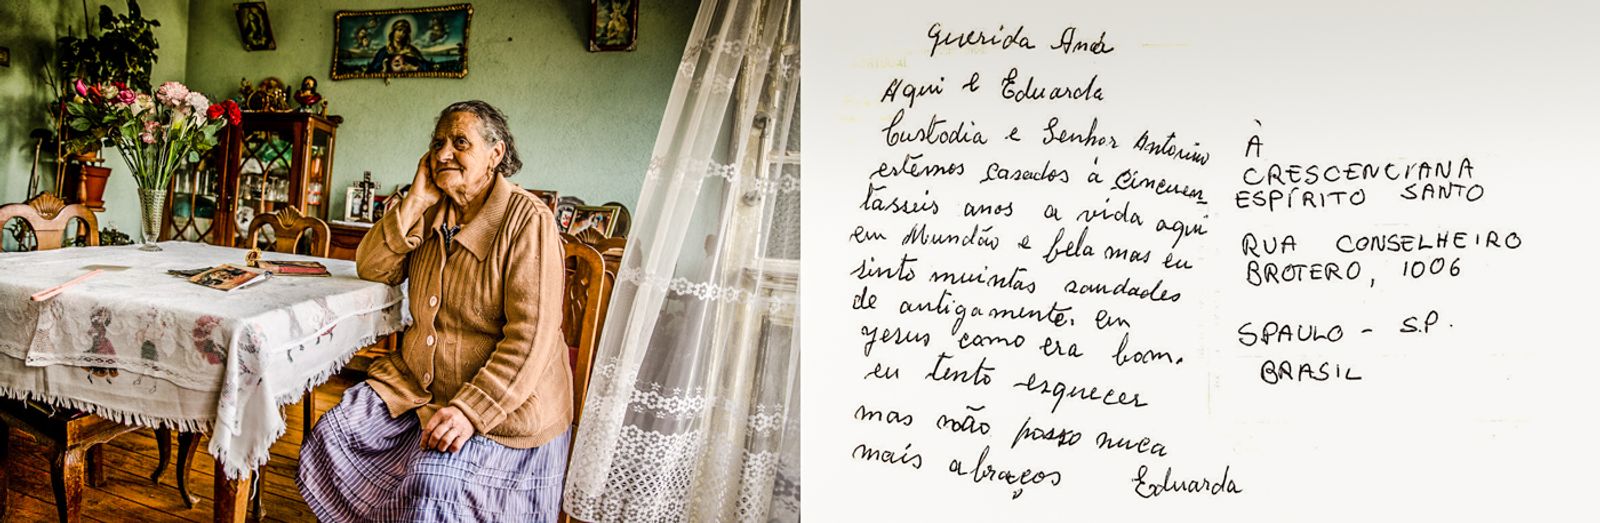 Querida Anár
Aqui e Eduarda
Custodia e Senhor Antonino
estêmos casados à cincuen
tasseis anos a vida aqui
em Mundão e bela mas eu
sinto muintas saudades
de antigamente. em
Yesus como era bom.
eu tento esquecer
mas não posso nuca
mais abraços Eduarda
À
CRESCENCIANA
ESPÍRITO SANTO
RUA CONSELHEIRO
BROTERO, 1006
SPAULO - S.P.
BRASIL